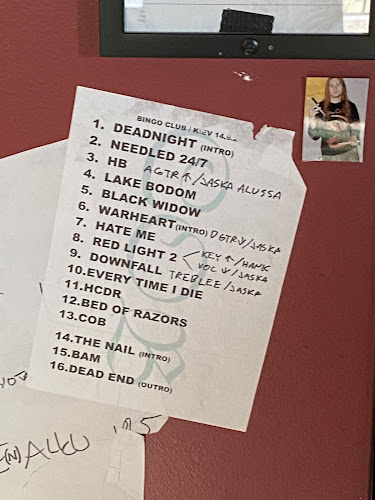 BINGO CLUB / KIEV 14.
1. DEADNIGHT (INTRO)
2. NEEDLED 24/7
3. HB AGTR↑/JASKA ALUSSA
4. LAKE BODOM
5. BLACK WIDOW
6. WARHEART (INTRO) DGTR↓/JASKA
7. HATE ME
8. RED LIGHT 2 < KEY↑/HANK
VOC↓/JASKA
9. DOWNFALL TREBLEE/JASKA
10.EVERY TIME I DIE
11.HCDR
12.BED OF RAZORS
13.COB
14.THE NAIL (INTRO)
15.BAM
16.DEAD END (OUTRO)